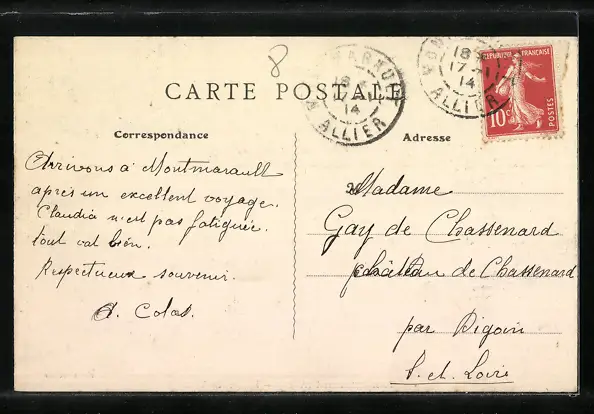 8
CARTE POSTALE
Correspondance
Arrivons à Montmarault
après un excellent voyage.
Claudia n'est pas fatiguée.
tout va bien.
Respectueux souvenir.
A. Colas.
Adresse
Madame
Gay de Chassenard
château de Chassenard
par Digoin
S. et. Loire
18
17
14
ALLIER
18
17
14
ALLIER
REPUBLIQUE FRANÇAISE
10c
POSTES